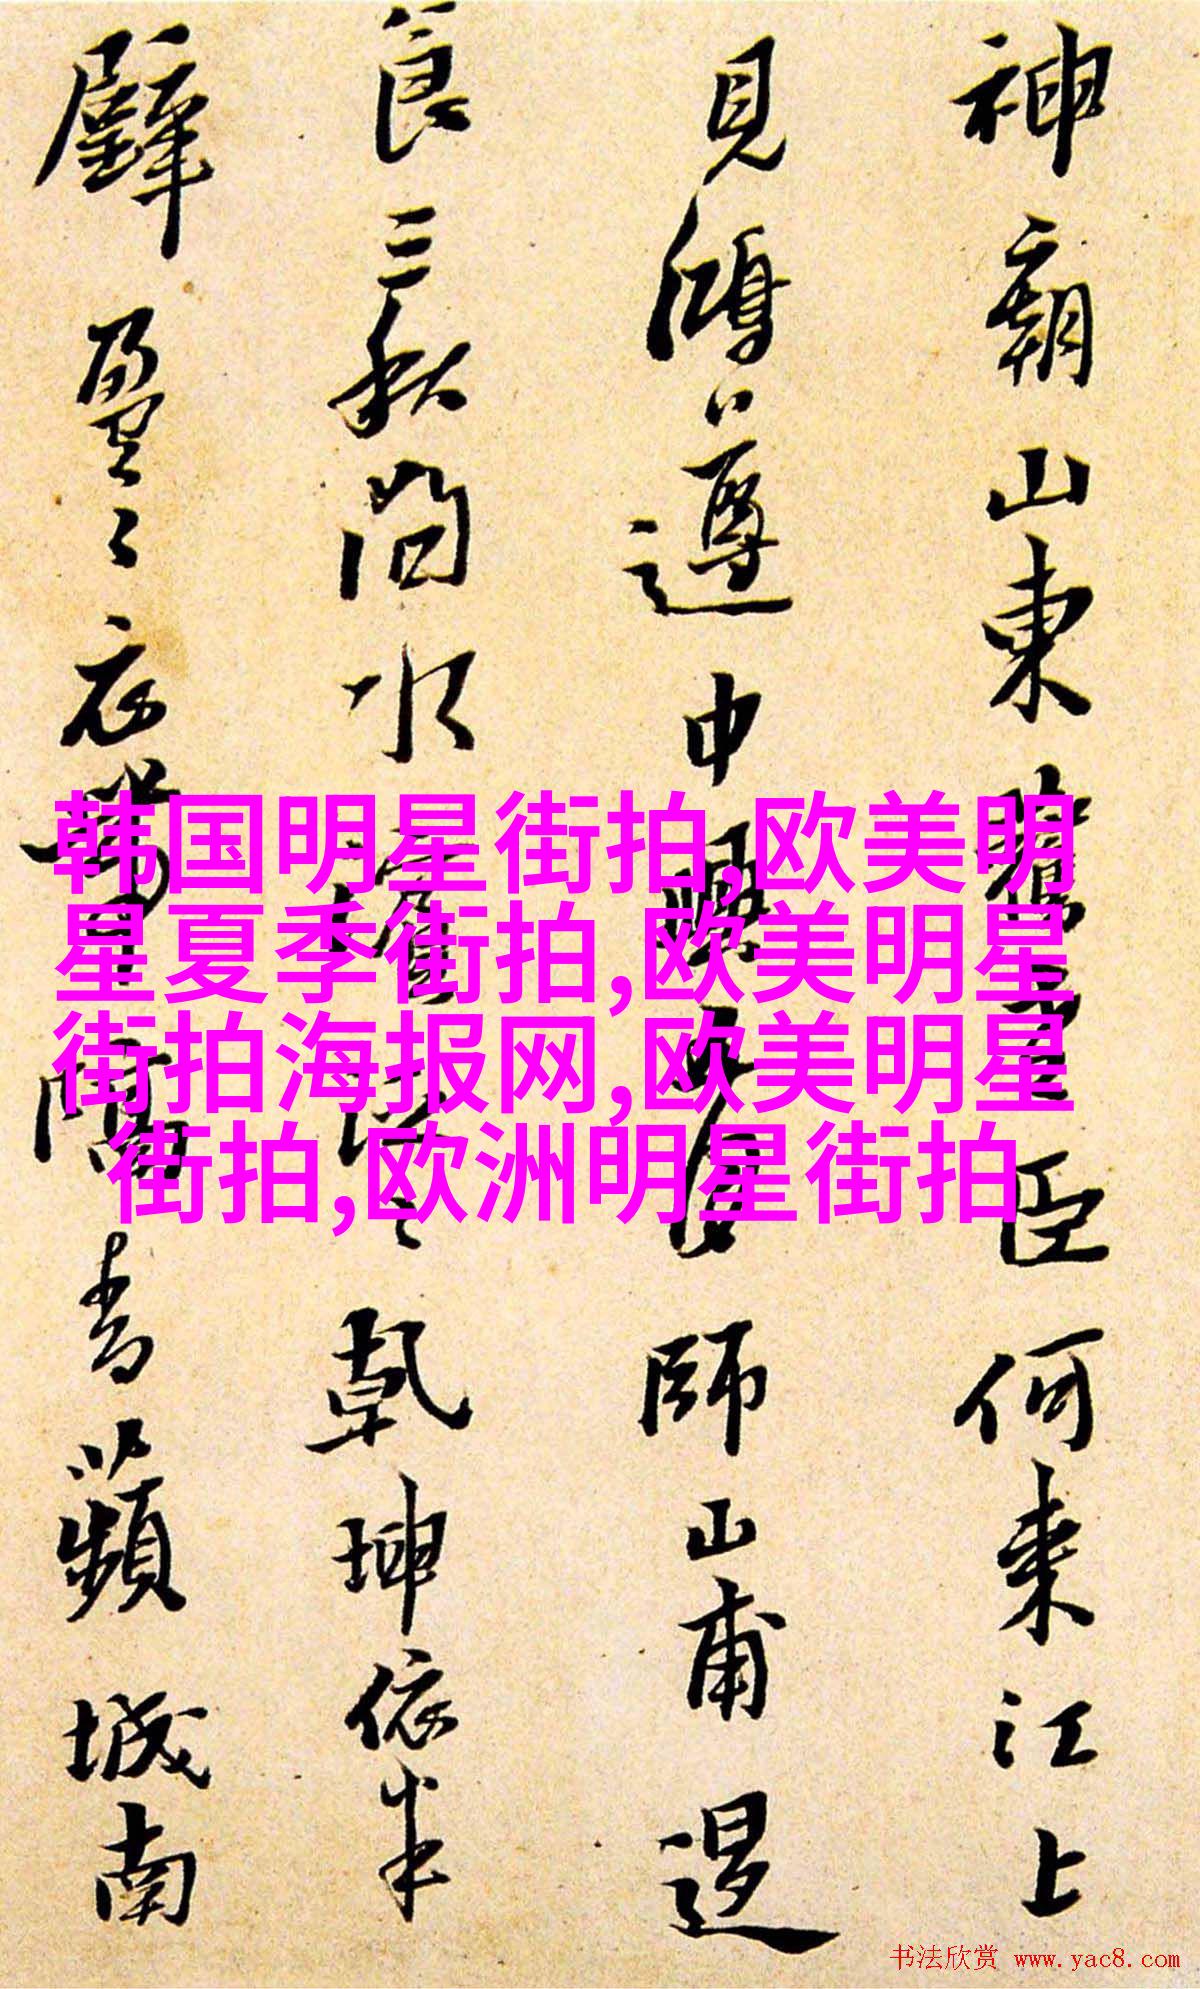 神廟山東
臣何来江上
見鴻遵中興
師山甫
良三秋間水
乾坤依半
壁
衣帶間青蘋城南
韩国明星街拍,欧美明
星夏季街拍,欧美明星
街拍海报网,欧美明星
街拍,欧洲明星街拍
书法欣赏 www.yac8.com